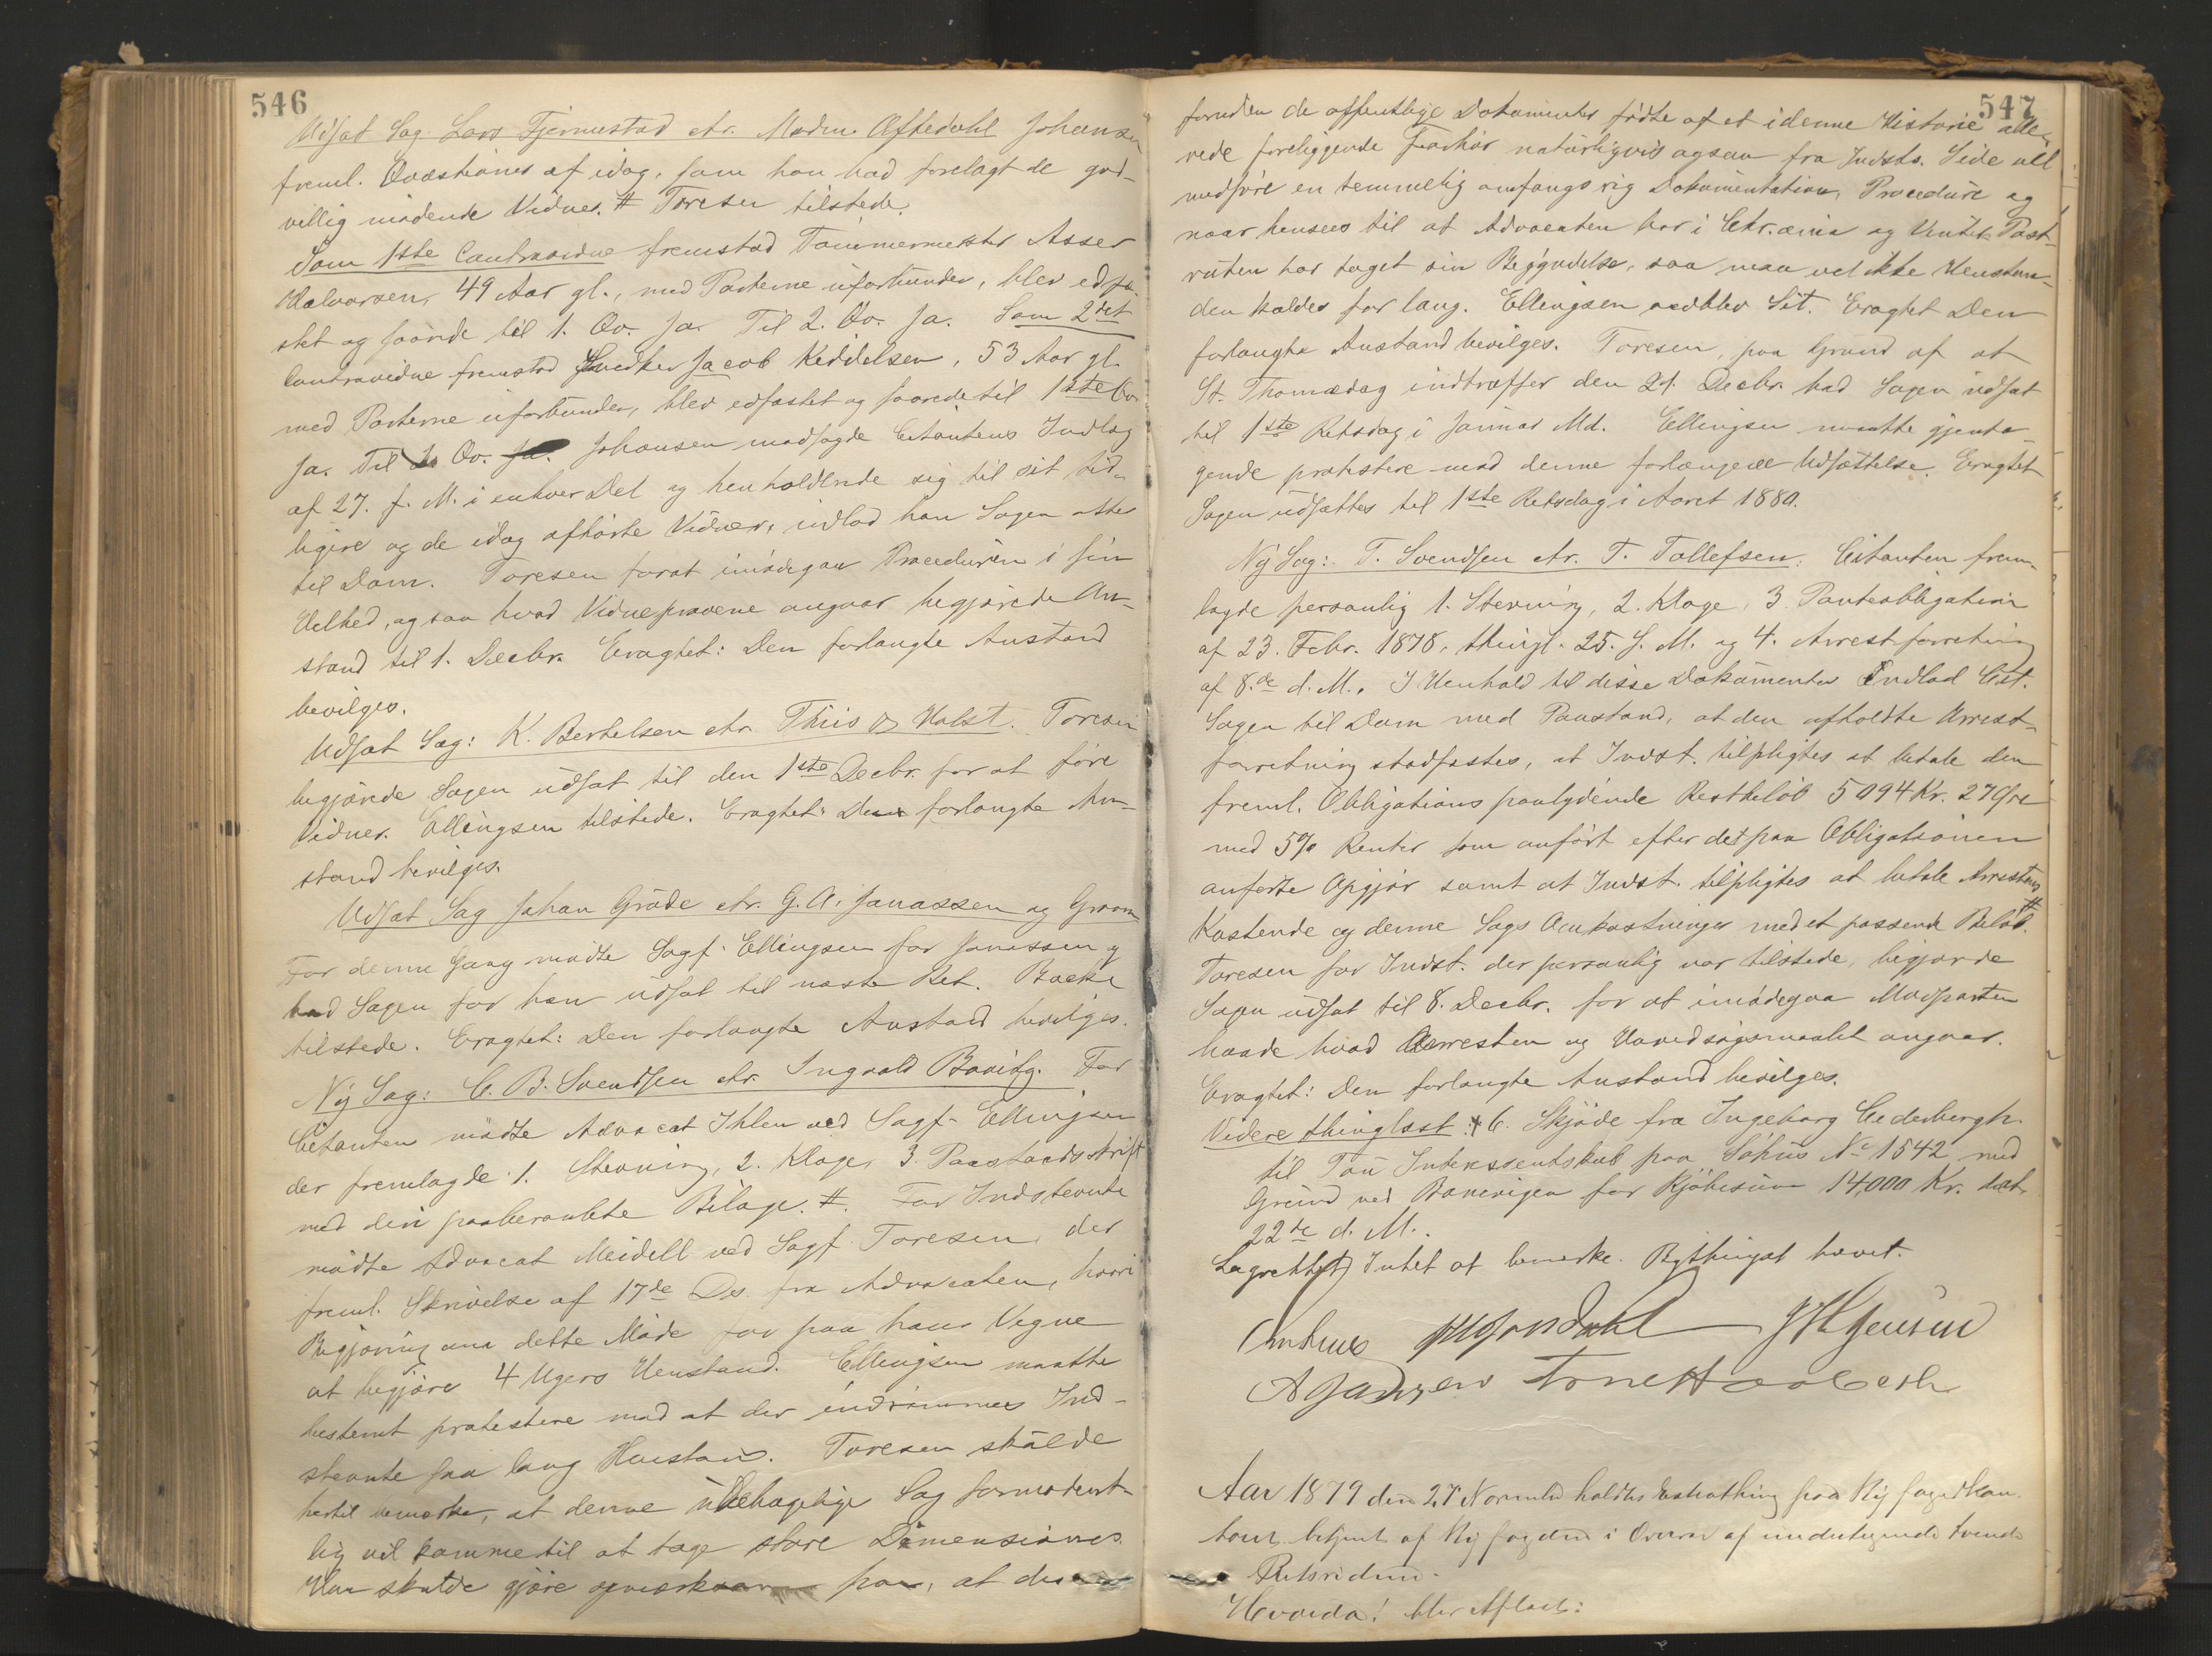 546
Udsat Sag Lars Tjermestad ctr. Madm. Aftedahl Johansen
freml. Qvæstioner af idag, som han bad forelagt de god-
villig mødende Vidner. # Toresen tilstede.
Som 1ste Contravidne fremstod Tømmermester Asser
Halvorsen, 49 Aar gl., med Parterne uforbunden, blev edfæ-
stet og svarede til 1. Qv. Ja. Til 2. Qv. Ja. Som 2det
Contravidne fremstod Snedker Jacob Keddelsen, 53 Aar gl.
med Parterne uforbunden, blev edfæstet og svarede til 1ste Qv.
Ja. Til Qv. Ja. Johansen modsagde Citantens Indlæg
af 27. f. M. i enhver Del og henholdende sig til sit tid-
ligere og de idag afhørte Vidner, indlod han Sagen atter
til Dom. Toresen forat imødegaa Proceduren i sin
Helhed, og saa hvad Vidneprovene angaar begjærede An-
stand til 1. Decbr. Eragtet: Den forlangte Anstand
bevilges.
Udsat Sag: K. Bertelsen ctr. Thiis & Halst. Toresen
begjærede Sagen udsat til den 1ste Decbr. for at føre
Vidner. Ellingsen tilstede. Eragtet: Den forlangte An-
stand bevilges.
Udsat Sag Johan Gråde ctr. G. A. Jonassen og Groom
For denne Gang mødte Sagf. Ellingsen for Jonassen og
bad Sagen for ham udsat til næste Ret. Backe
tilstede. Eragtet: Den forlangte Anstand bevilges.
Ny Sag: C. B. Svendsen ctr. Ingvald Bavitz. For
Citanten mødte Advocat Ihlen ved Sagf. Ellingsen
der fremlagde 1. Stevning, 2. Klage, 3. Paastandsskrift
med den paaberaabte Bilage. #. For Indstevnte
mødte Advocat Meidell ved Sagf. Toresen, der
freml. Skrivelse af 17de Ds. fra Advocaten, hvori
Begjæring om dette Møde for paa hans Vegne
at begjære 4 Ugers Henstand. Ellingsen maatte
bestemt protestere mod at der indrømmes Ind-
stevnte saa lang Henstand. Toresen skulde
hertil bemærke, at denne ubehagelige Sag formodent-
lig vil komme til at tage store Dimensioner.
Han skulde gjøre opmærksom paa, at der
547
foruden de offentlige Dokumenter fødte af et i denne Historie alle-
rede foreliggende Forhør naturligvis ogsaa fra Indsts. Side vil
medføre en temmelig omfangsrig Dokumentation, Procedure og
naar hensees til at Advocaten bor i Chr.ania og Vinter Post-
ruten har taget sin Begyndelse, saa maa vel ikke Henstan-
den kaldes for lang. Ellingsen vedblev Sit. Eragtet Den
forlangte Anstand bevilges. Toresen, paa Grund af at
St. Thomædag indtræffer den 21. Decbr. bad Sagen udsat
til 1ste Retsdag i Januar Md. Ellingsen maatte gjenta-
gende protestere mod denne forlængede Udsættelse. Eragtet
Sagen udsættes til 1ste Retsdag i Aaret 1880.
Ny Sag: T. Svendsen ctr. T. Tollefsen. Citanten frem-
lagde personlig 1. Stevning, 2. Klage, 3. Panteobligation
af 23. Febr. 1878, thingl. 25. s. M. og 4. Arrestforretning
af 8.de d. M. I Henhold til disse Dokumenter Indlod Cit.
Sagen til Dom med Paastand, at den afholdte Arrest-
forretning stadfæstes, at Indst. tilpligtes at betale den
freml. Obligations paalydende Restbeløb 5094 Kr. 27 Øre
med 5% Renter som anført efter det paa Obligationen
anførte Opgjør samt at Indst. tilpligtes at betale Arrestens
Kostende og denne Sags Omkostninger med et passende Beløb. #
Toresen for Indst. der personlig var tilstede, begjærede
Sagen udsat til 8. Decbr. for at imødegaa Modparten
baade hvad Arresten og Hovedsøgsmaalet angaar.
Eragtet: Den forlangte Anstand bevilges.
Videre thinglæst: # 6. Skjøde fra Ingeborg Cederbergh
til Tou Interessentskab paa Søhus No 1542 med
Grund ved Banevigen for Kjøbesum 14,000 Kr. dat.
22de d. M.
Lagrettet Intet at bemærke. Bythinget hævet.
JHJensen
Aar 1879 den 27 Novembr holdtes Extrathing paa Byfogedkon-
toret betjent af Byfogden i Overvær af undertegnede tvende
Retsvidner.
Hvorda! blev Aflæst: